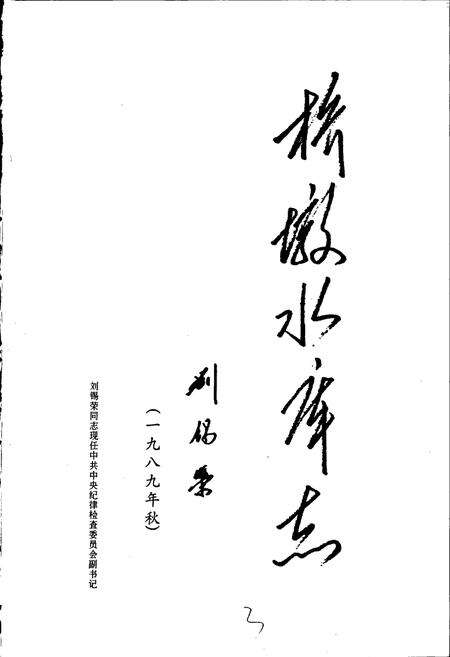 桥墩水库志
刘锡荣
(一九八九年秋)
刘锡荣同志现任中共中央纪律检查委员会副书记
3